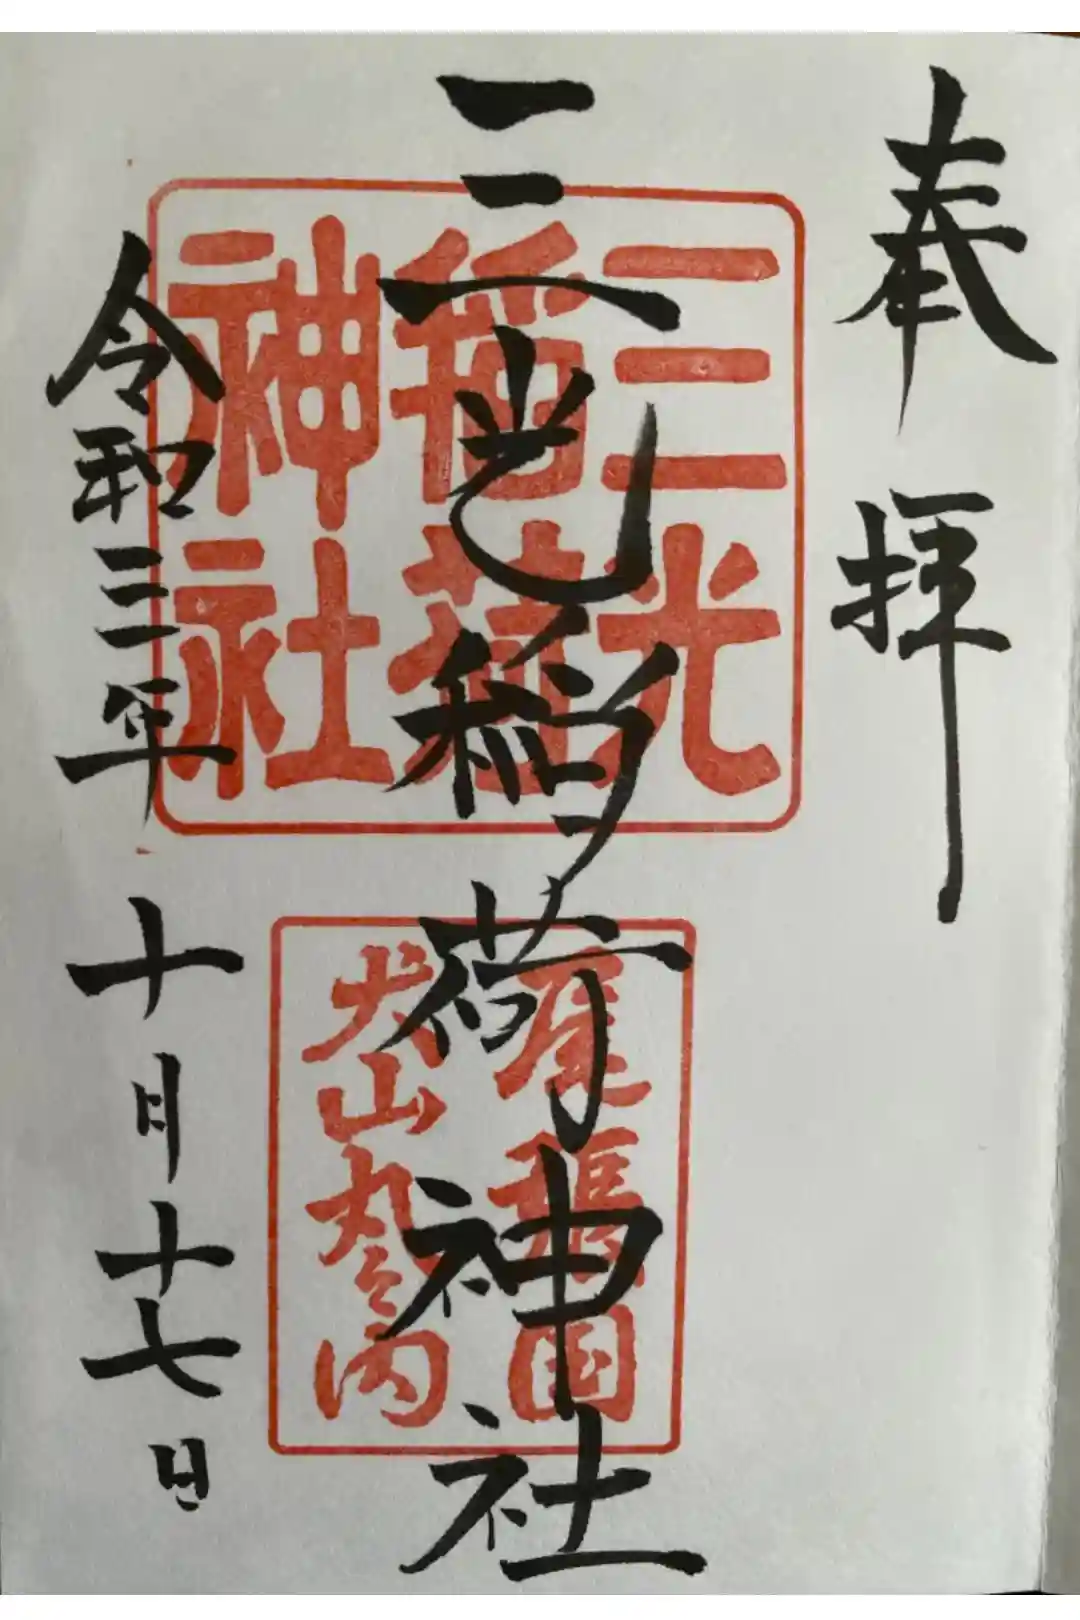 奉拝
三光稲荷神社
令和三年十月十七日
三光
稲荷
神社
尾張国
犬山丸之内